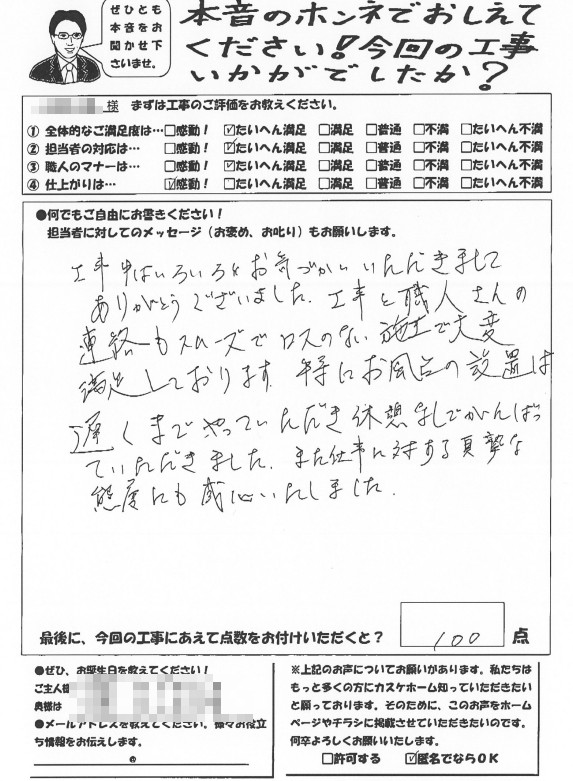 ぜひとも
本音をお
聞かせ下
さいませ。
本音のホンネでおしえて
ください！今回の工事
いかがでしたか？
様 まずは工事のご評価をお教えください。
① 全体的なご満足度は… □感動！ ☑たいへん満足 □満足 □普通 □不満 □たいへん不満
② 担当者の対応は… □感動！ ☑たいへん満足 □満足 □普通 □不満 □たいへん不満
③ 職人のマナーは… □感動！ ☑たいへん満足 □満足 □普通 □不満 □たいへん不満
④ 仕上がりは… ☑感動！ □たいへん満足 □満足 □普通 □不満 □たいへん不満
●何でもご自由にお書きください！
担当者に対してのメッセージ（お褒め、お叱り）もお願いします。
工事中はいろいろとお気づかいいただきまして
ありがとうございました。工事と職人さんの
連絡もスムーズでロスのない施工で大変
満足しております。特にお風呂の設置は
遅くまでやっていただき休憩なしでがんばっ
ていただきました。また仕事に対する真摯な
態度にも感心いたしました。
最後に、今回の工事にあえて点数をお付けいただくと？ 100 点
●ぜひ、お誕生日を教えてください！
ご主人様
奥様は
●メールアドレスを教えてください。様々お役立
ち情報をお伝えします。
@
※上記のお声についてお願いがあります。私たちは
もっと多くの方にカスケホーム知っていただきたい
と願っております。そのために、このお声をホーム
ページやチラシに掲載させていただきたいのです。
何卒よろしくお願いいたします。
□許可する ☑匿名でならOK